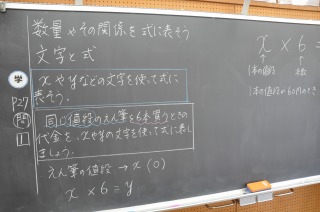 数量やその関係を式に表そう
文字と式
学
xやyなどの文字を使って式に
表そう。
P.27
問
1
同じ値段のえん筆を6本買うときの
代金を、xやyの文字を使って式に表し
ましょう。
えん筆の値段 → x (0)
x × 6 = y
x × 6 =
1本の値段
本数
1本の値段が60円のとき